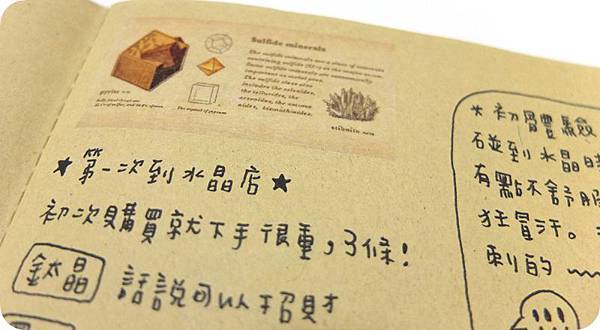 Sulfide minerals
The sulfide minerals are a class of minerals
containing sulfide (S2−) as the major anion.
Some sulfide minerals are economically
important as metal ores.
The sulfide class also
includes the selenides,
the tellurides, the
arsenides, the antimo
nides, bismuthinides,
stibnite
★第一次到水晶店★
初次購買就下手很重,3條!
鈦晶 話說可以招財
*初體驗
碰到水晶時
有點不舒服
狂冒汗。
刺的~